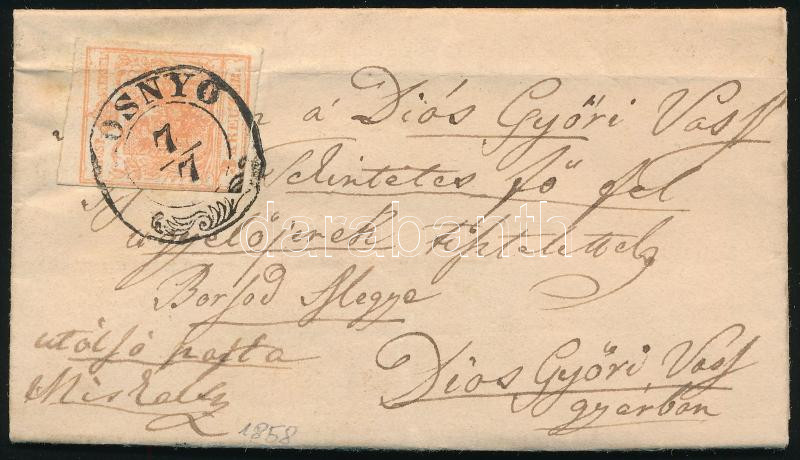 OSNYO
7/7
a Diós Győri Vass
Tekintetes fő fel
ügyelőjének tisztelettel
Borsod Megye
utólsó posta
Miskolcz
Dios Győri Vass
gyárban
1858
darabanth.com